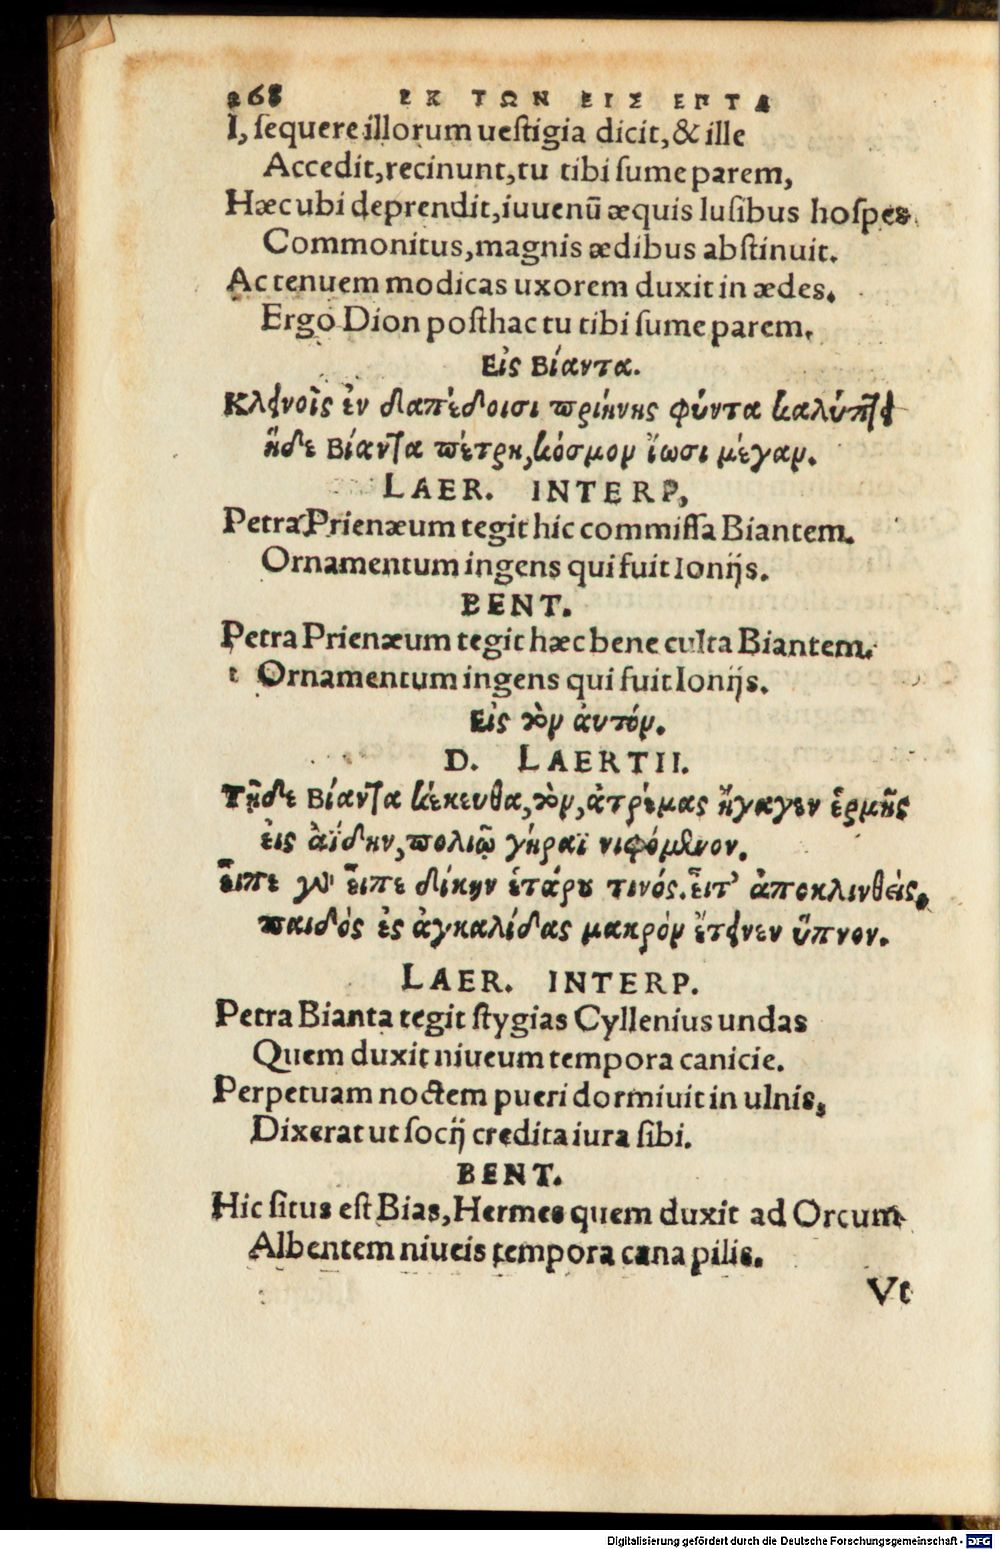 268 ΕΚ ΤΩΝ ΕΙΣ ΕΠΤΑ
I, ſequere illorum ueſtigia dicit, & ille
Accedit, recinunt, tu tibi ſume parem,
Hæc ubi deprendit, iuuenū æquis luſibus hoſpes
Commonitus, magnis ædibus abſtinuit.
Ac tenuem modicas uxorem duxit in ædes.
Ergo Dion poſthac tu tibi ſume parem.
Εἰς Βίαντα.
Κλεινοῖς ἐν δαπέδοισι πριήνης φύντα καλύπτει
ἥδε Βίαντα πέτρη, κόσμον ἴωσι μέγαν.
LAER. INTERP,
Petra Prienæum tegit hic commiſſa Biantem.
Ornamentum ingens qui fuit Ionijs.
BENT.
Petra Prienæum tegit hæc bene culta Biantem.
Ornamentum ingens qui fuit Ionijs.
Εἰς τὸν ἀυτόν.
D. LAERTII.
Τῇδε Βίαντα κέκευθα, τὸν, ἀτρέμας ἤγαγεν ἑρμῆς
εἰς ἀΐδην, πολιῷ γήραϊ νιφόμενον.
εἶπε γὰρ εἶπε δίκην ἑτάρου τινός. εἶτ' ἀποκλινθεὶς,
παιδὸς ἐς ἀγκαλίδας μακρὸν ἔτεινεν ὕπνον.
LAER. INTERP.
Petra Bianta tegit ſtygias Cyllenius undas
Quem duxit niueum tempora canicie.
Perpetuam noctem pueri dormiuit in ulnis,
Dixerat ut ſocij credita iura ſibi.
BENT.
Hic ſitus eſt Bias, Hermes quem duxit ad Orcum
Albentem niueis tempora cana pilis.
Vt
Digitalisierung gefördert durch die Deutsche Forschungsgemeinschaft - DFG